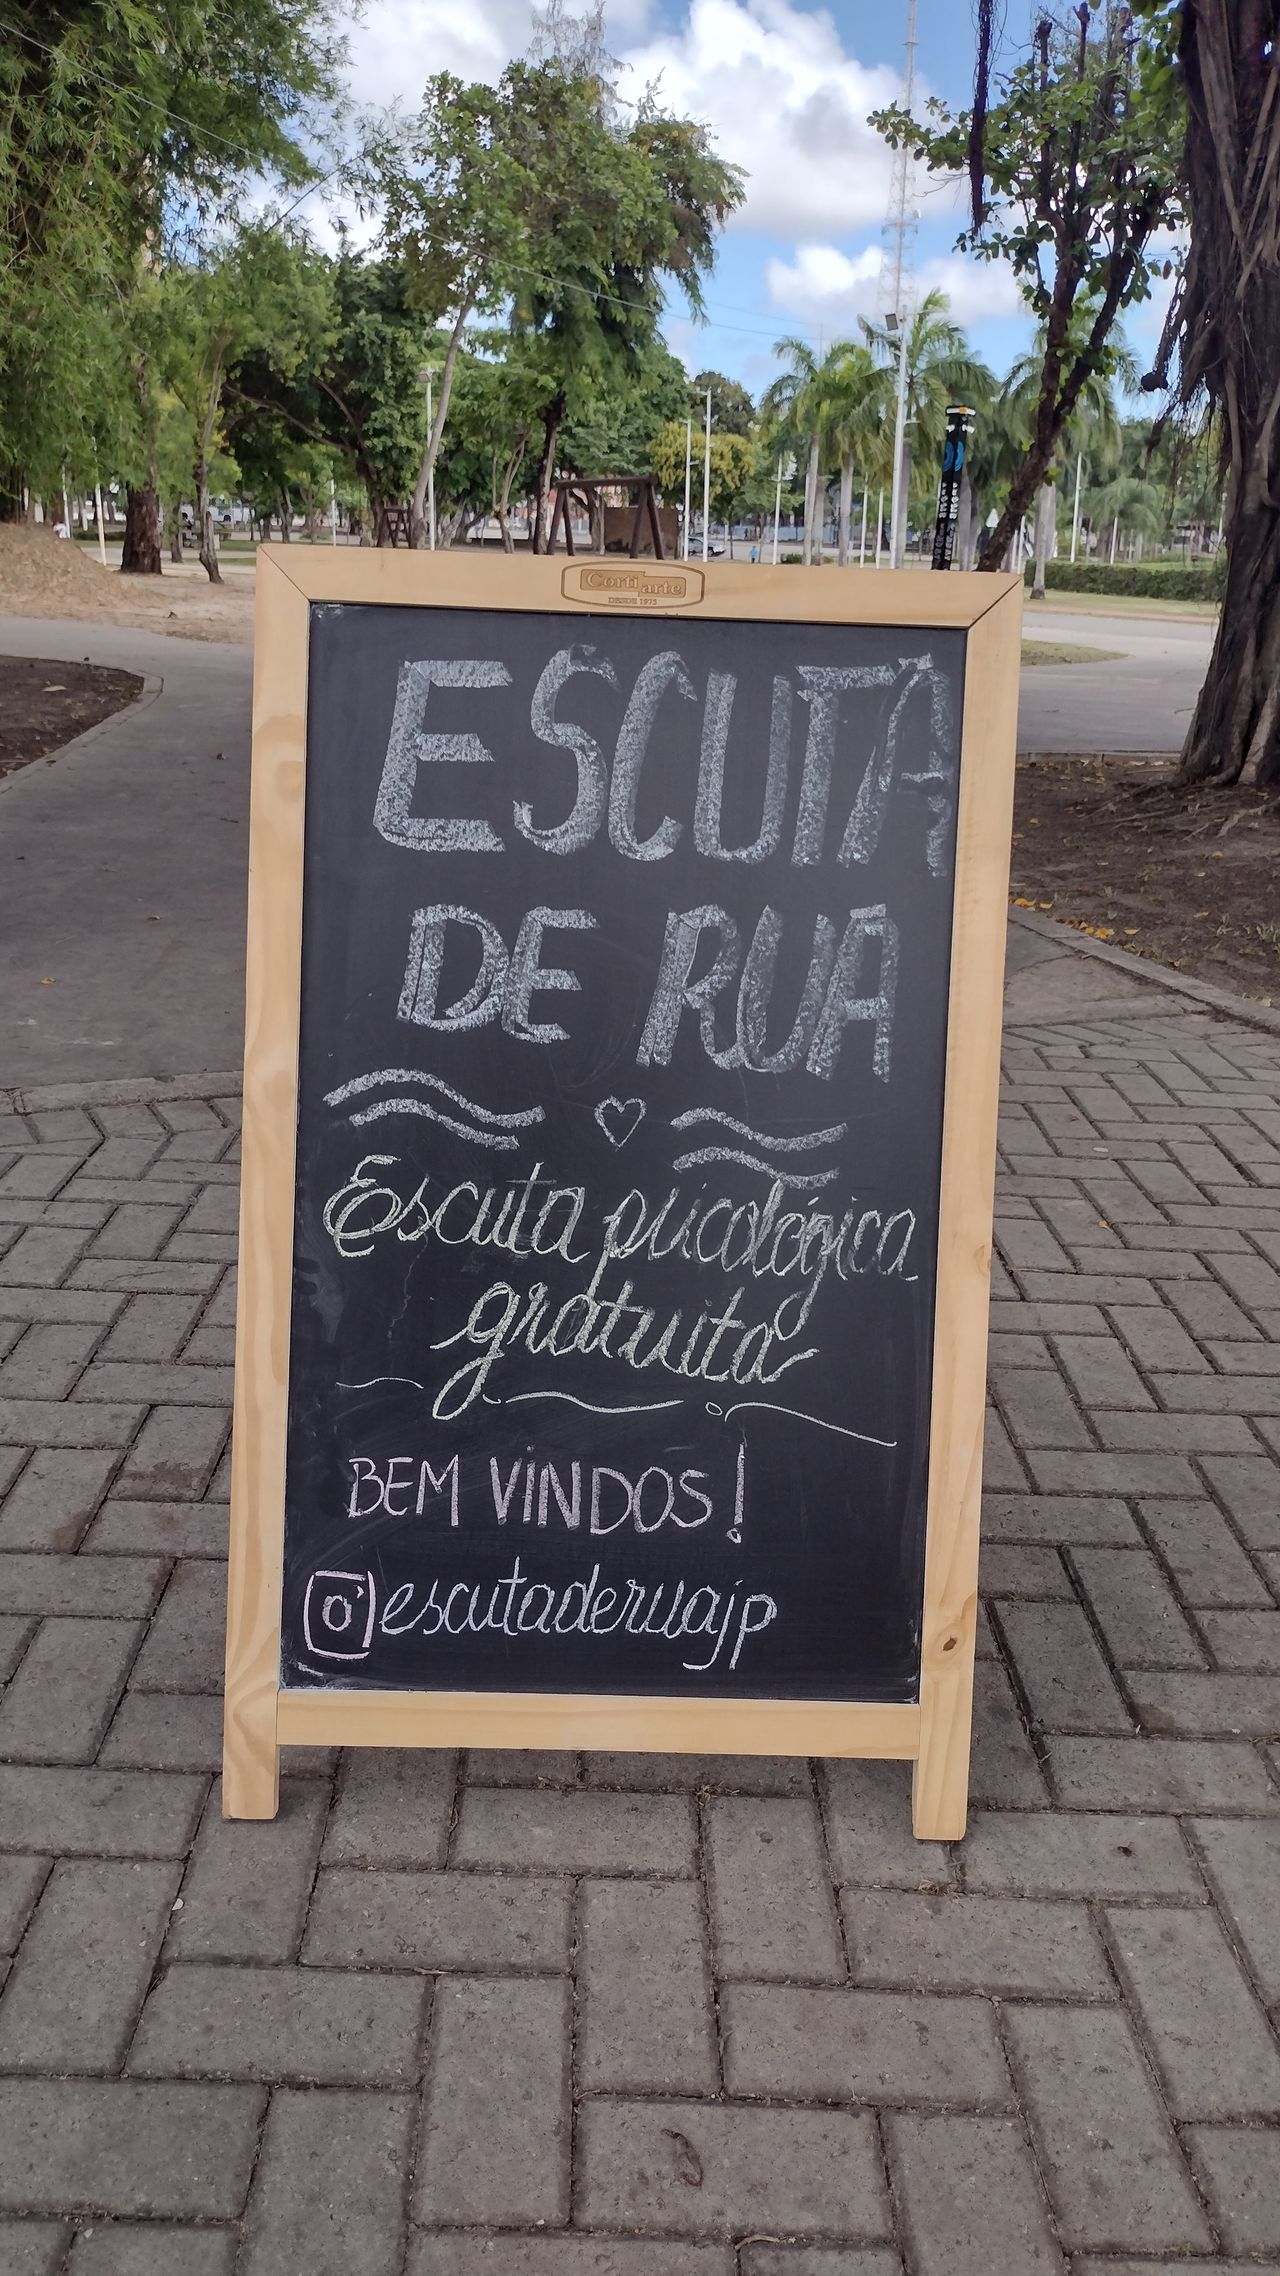 Corti arte
DESDE 1975
ESCUTA
DE RUA
Escuta psicológica
gratuita
BEM VINDOS!
escutaderuajp